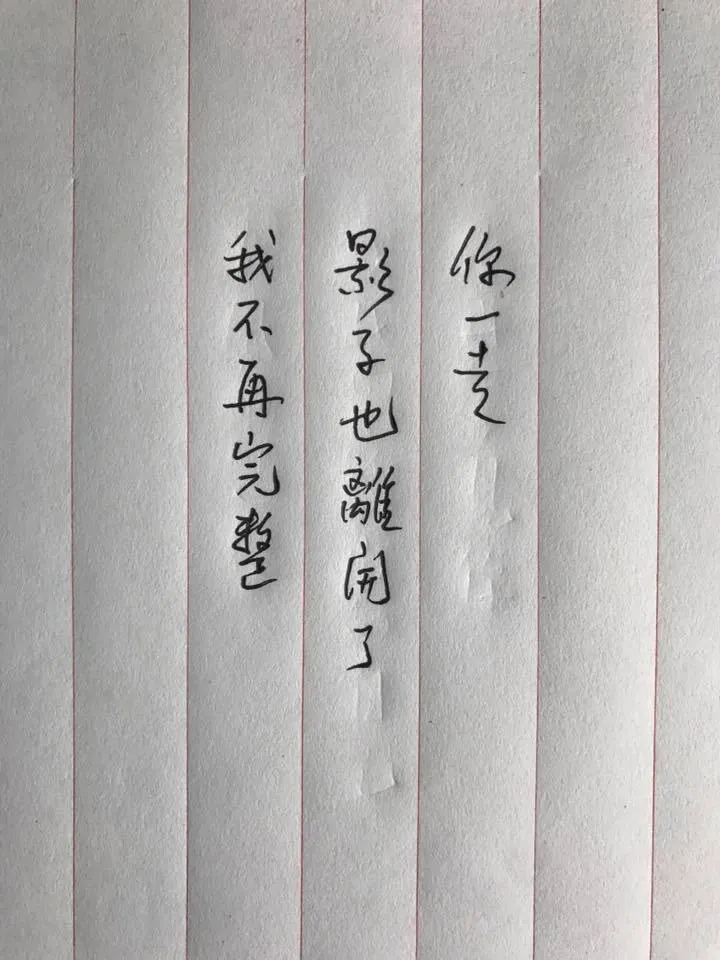 你一走
影子也離開了
我不再完整